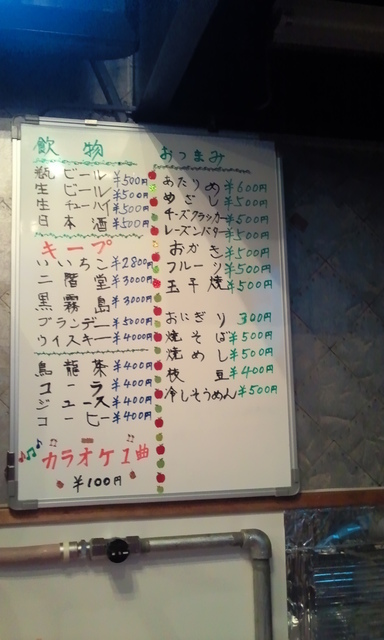 飲物
瓶ビール ¥500円
生ビール ¥500円
生チューハイ ¥500円
日本酒 ¥500円
キープ
いいちこ ¥2800円
二階堂 ¥3000円
黒霧島 ¥3000円
ブランデー ¥5000円
ウイスキー ¥4000円
烏龍茶 ¥400円
コーラ ¥400円
ジュース ¥400円
コーヒー ¥400円
カラオケ1曲
¥100円
おつまみ
あたりめ ¥600円
めざし ¥500円
チーズクラッカー ¥500円
レーズンバター ¥500円
おかき ¥500円
フルーツ ¥500円
玉子焼 ¥500円
おにぎり 300円
焼そば ¥500円
焼めし ¥500円
枝豆 ¥400円
冷しそうめん ¥500円